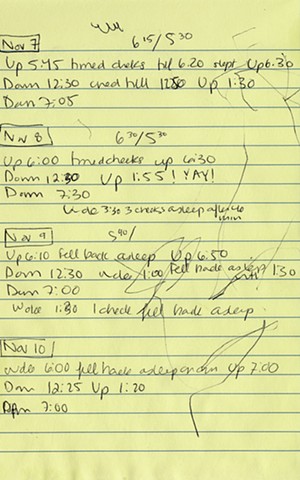 Nov 7 6 15/5 30
Up 5:45 timed checks till 6:20 slept Up 6:30
Down 12:30 cried till 12:50 Up 1:30
Down 7:05
Nov 8 6 30/5 30
Up 6:00 timed checks up 6:30
Down 12:30 Up 1:55! YAY!
Down 7:30
woke 3:30 3 checks asleep after 46 min
Nov 9 5 40/
Up 6:10 fell back asleep Up 6:50
Down 12:30 woke 1:00 fell back asleep until 1:30
Down 7:00
Woke 1:30 1 check fell back asleep.
Nov 10
woke 6:00 fell back asleep on own Up 7:00
Down 12:25 Up 1:20
Down 7:00